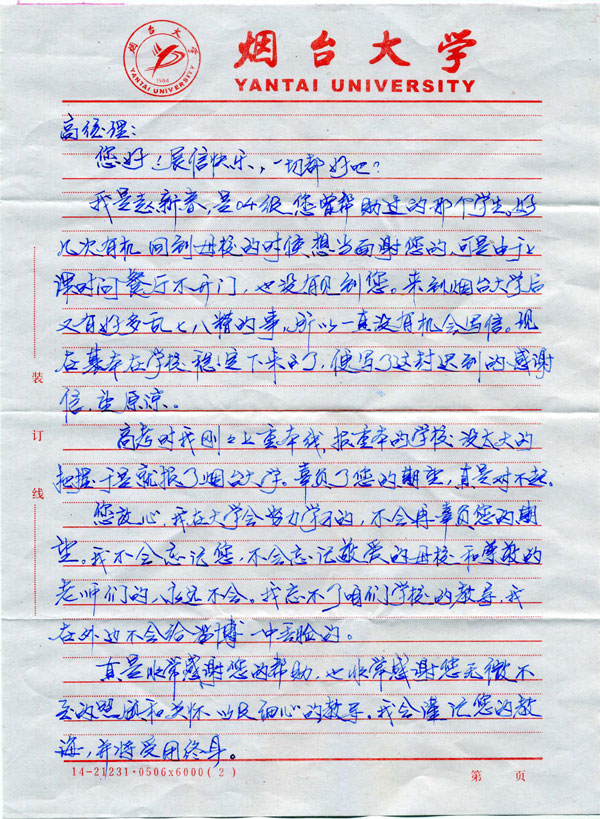 烟台大学
YANTAI UNIVERSITY
1984
烟台大学
YANTAI UNIVERSITY
高经理：
您好！展信快乐，一切都好吧？
我是赵新春，是04级您曾帮助过的那个学生。好
几次有机回到母校的时候，想当面谢您的，可是由于上
课时间餐厅不开门，也没有见到您。来到烟台大学后
又有好多乱七八糟的事，所以一直没有机会写信。现
在基本在学校稳定下来了，便写了这封迟到的感谢
信，望原谅。
高考时我刚刚上重本线，报重本的学校没太大的
把握于是就报了烟台大学。辜负了您的期望，真是对不起。
您放心，我在大学会努力学习的，不会再辜负您的期
望。我不会忘记您，不会忘记敬爱的母校和尊敬的
老师们的，永远不会。我忘不了咱们学校的教导，我
在外边不会给淄博一中丢脸的。
真是非常感谢您的帮助，也非常感谢您无微不
至的照顾和关怀以及细心的教导。我会谨记您的教
诲，并将受用终身。
装
订
线
14-21231·0506x6000(2)
第 页